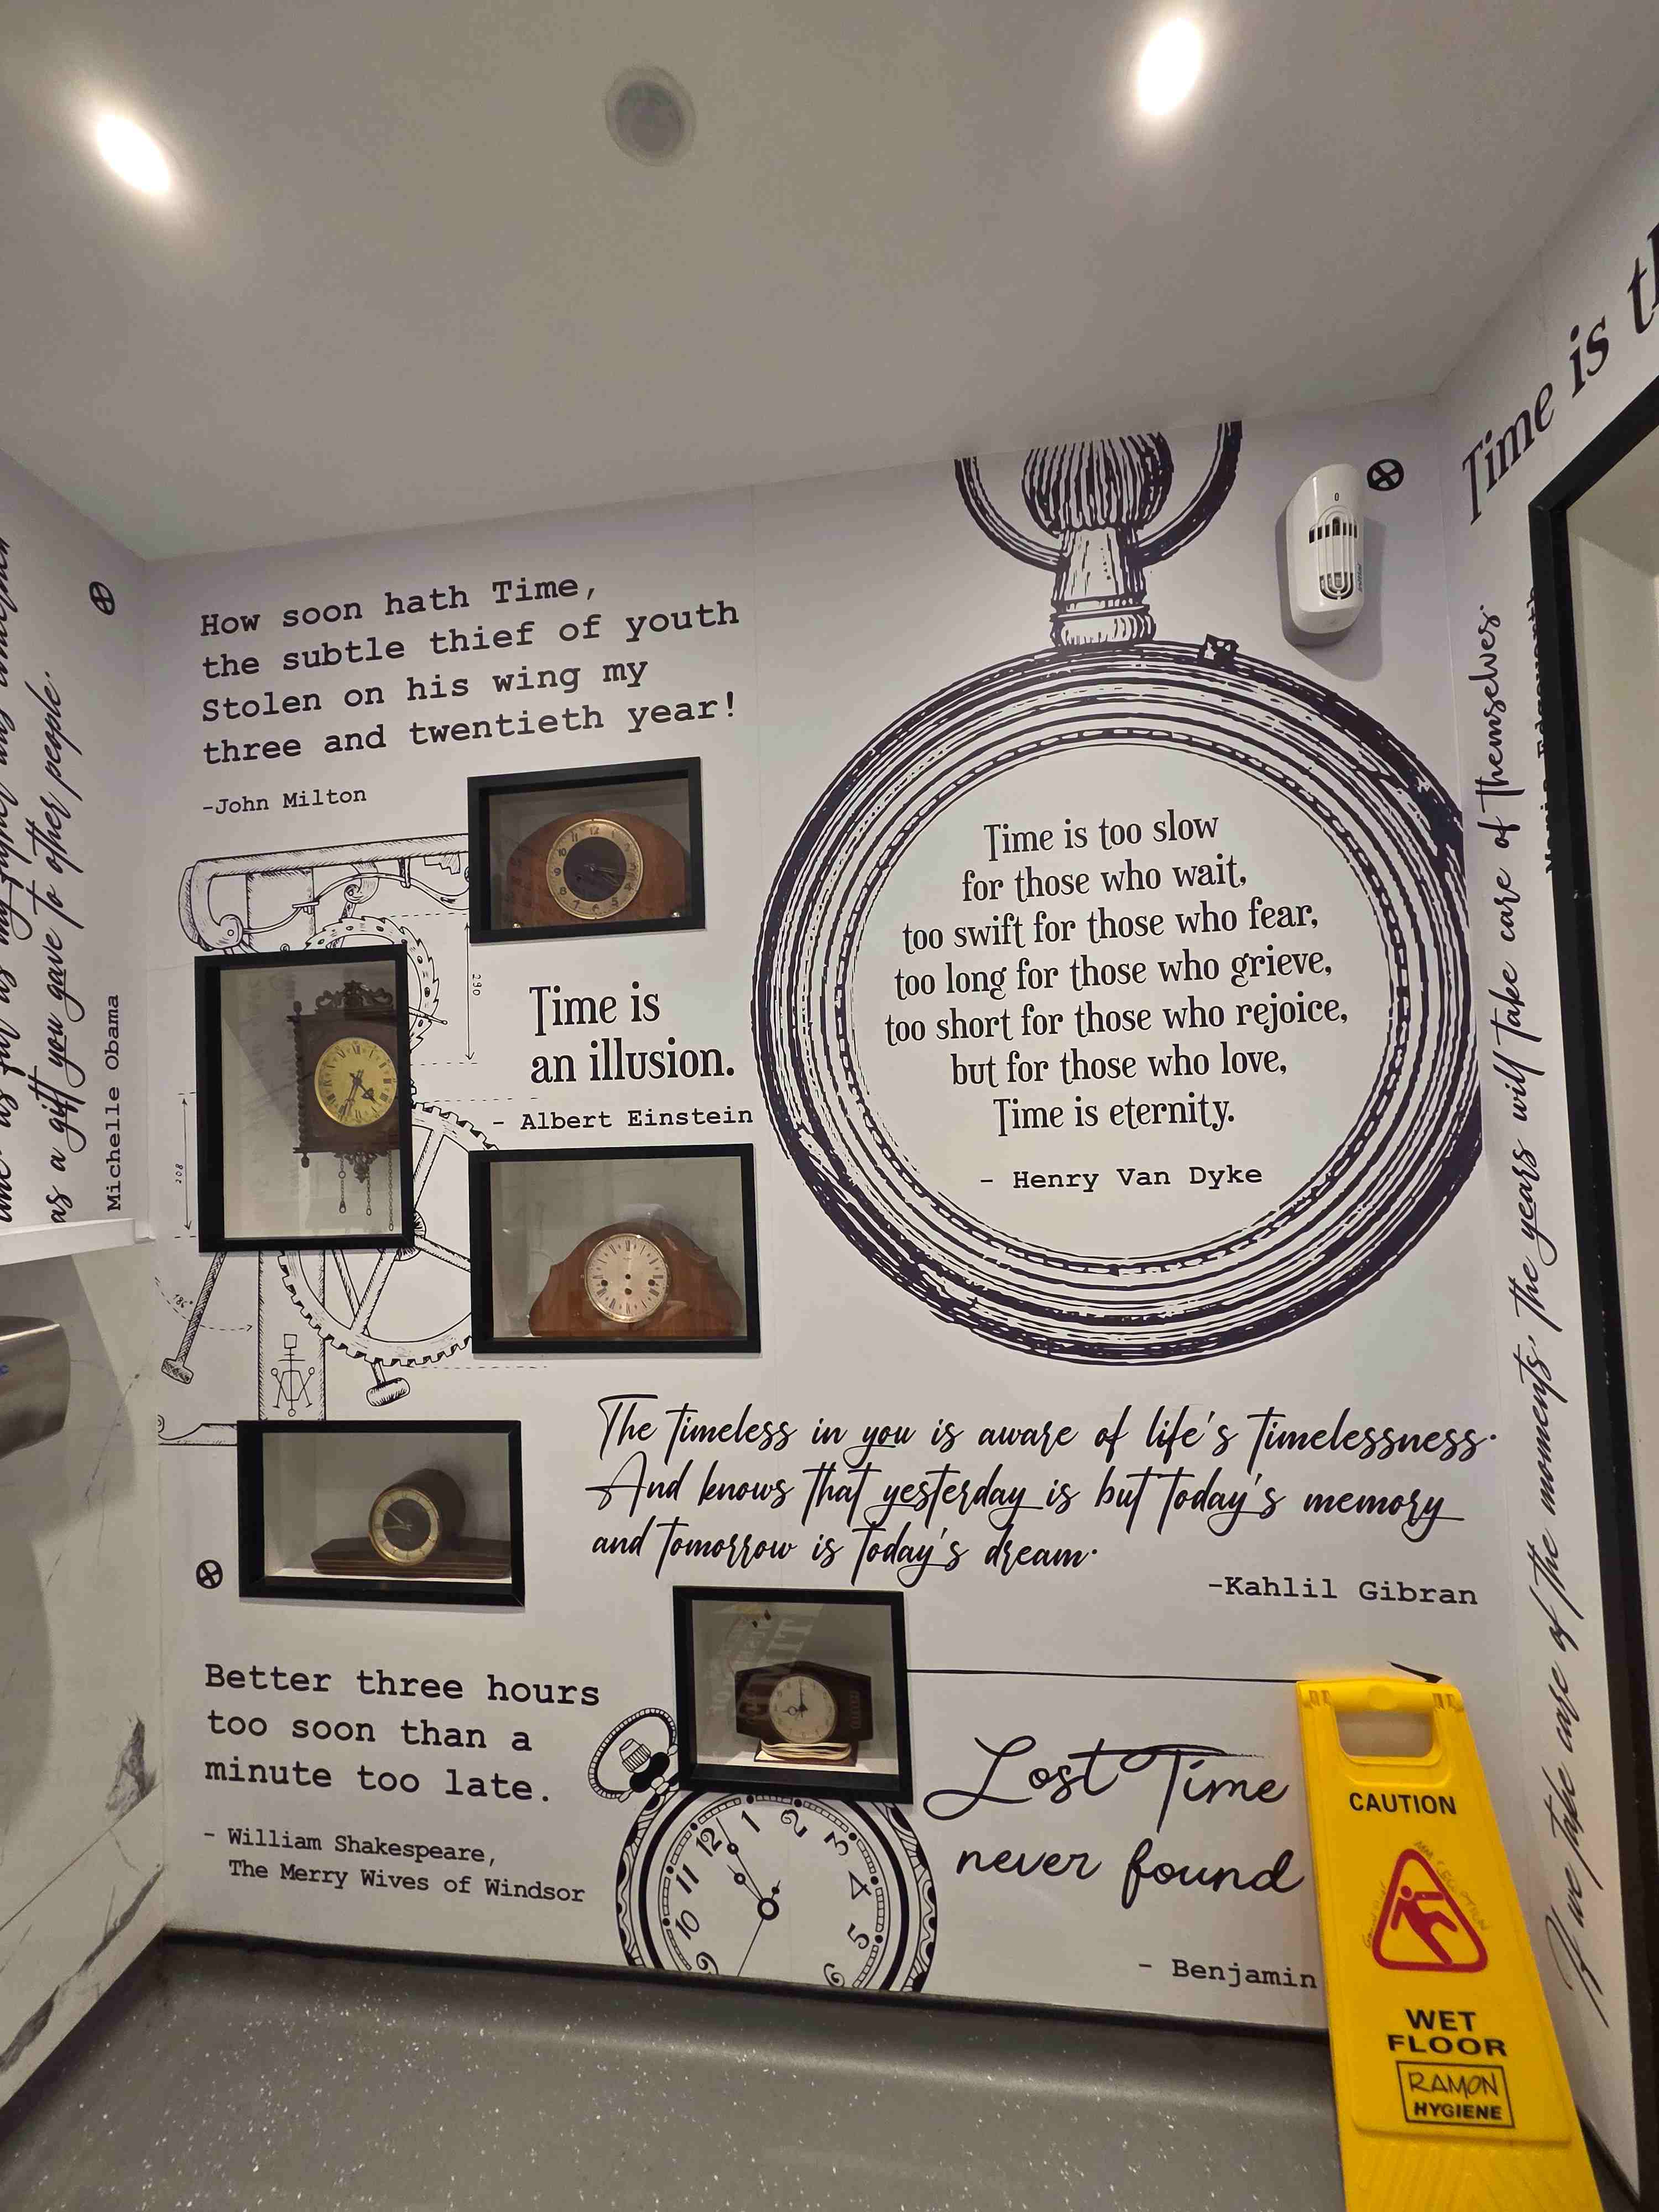 as a gift you gave to other people.
Michelle Obama
How soon hath Time,
the subtle thief of youth
Stolen on his wing my
three and twentieth year!
-John Milton
290
Time is
an illusion.
- Albert Einstein
208
Time is too slow
for those who wait,
too swift for those who fear,
too long for those who grieve,
too short for those who rejoice,
but for those who love,
Time is eternity.
- Henry Van Dyke
The timeless in you is aware of life's timelessness.
And knows that yesterday is but today's memory
and tomorrow is today's dream.
-Kahlil Gibran
Better three hours
too soon than a
minute too late.
- William Shakespeare,
The Merry Wives of Windsor
12 1 2 3 4 5 6 9 10 11
Lost Time
never found
- Benjamin
Time is
If we take care of the moments, the years will take care of themselves.
CAUTION
WET
FLOOR
RAMON
HYGIENE